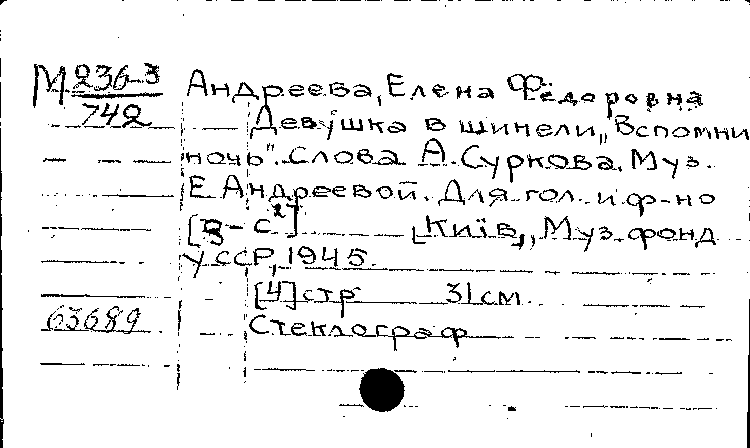 М 236-3 Андреева, Елена Фёдоровна
742 Девушка в шинели „Вспомни
ночь". Слова А. Суркова. Муз.
Е Андреевой. Для гол. и ф-но
[в-с²] [Київ], Муз. фонд
УССР, 1945.
[4] стр 31 см
63689 Стеклограф